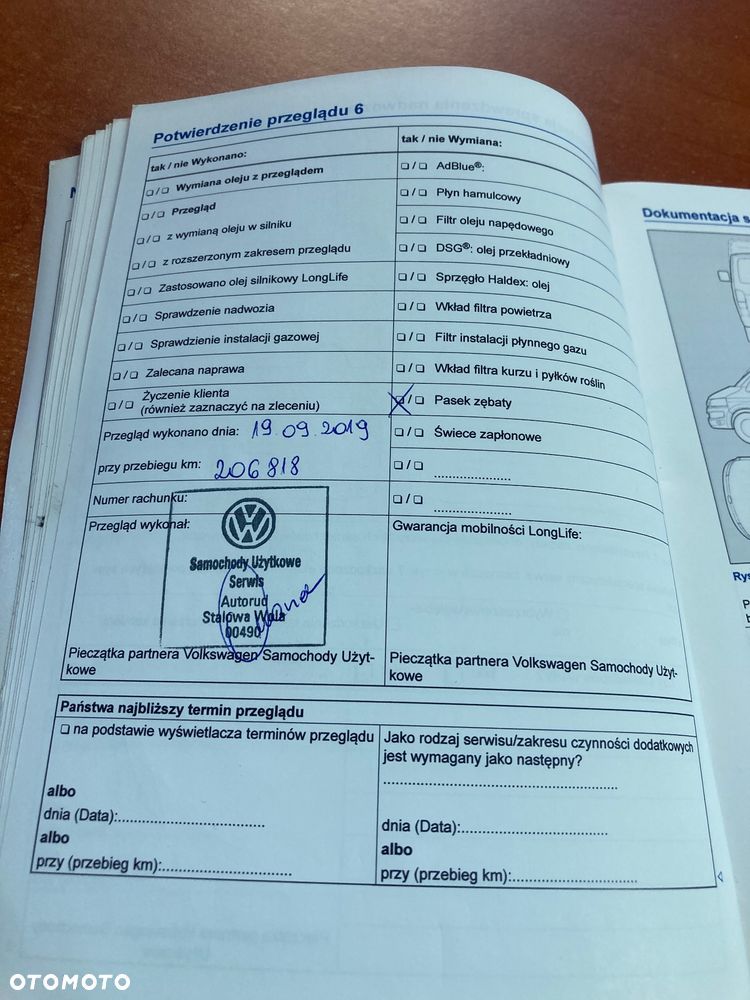 Potwierdzenie przeglądu 6
tak / nie Wykonano:
❏ / ❏ Wymiana oleju z przeglądem
❏ / ❏ Przegląd
❏ / ❏ z wymianą oleju w silniku
❏ / ❏ z rozszerzonym zakresem przeglądu
❏ / ❏ Zastosowano olej silnikowy LongLife
❏ / ❏ Sprawdzenie nadwozia
❏ / ❏ Sprawdzienie instalacji gazowej
❏ / ❏ Zalecana naprawa
❏ / ❏ Życzenie klienta
(również zaznaczyć na zleceniu)
Przegląd wykonano dnia: 19.09.2019
przy przebiegu km: 206818
Numer rachunku:
Przegląd wykonał:
Samochody Użytkowe
Serwis
Autorud
Stalowa Wola
00490
Pieczątka partnera Volkswagen Samochody Użyt-
kowe
tak / nie Wymiana:
❏ / ❏ AdBlue®:
❏ / ❏ Płyn hamulcowy
❏ / ❏ Filtr oleju napędowego
❏ / ❏ DSG®: olej przekładniowy
❏ / ❏ Sprzęgło Haldex: olej
❏ / ❏ Wkład filtra powietrza
❏ / ❏ Filtr instalacji płynnego gazu
❏ / ❏ Wkład filtra kurzu i pyłków roślin
☒ / ❏ Pasek zębaty
❏ / ❏ Świece zapłonowe
❏ / ❏ ....................
❏ / ❏ ....................
Gwarancja mobilności LongLife:
Pieczątka partnera Volkswagen Samochody Użyt-
kowe
Państwa najbliższy termin przeglądu
❏ na podstawie wyświetlacza terminów przeglądu
albo
dnia (Data):....................................
albo
przy (przebieg km):................................
Jako rodzaj serwisu/zakresu czynności dodatkowych
jest wymagany jako następny?
..........................................................
dnia (Data):....................................
albo
przy (przebieg km):...............................
Dokumentacja s
OTOMOTO